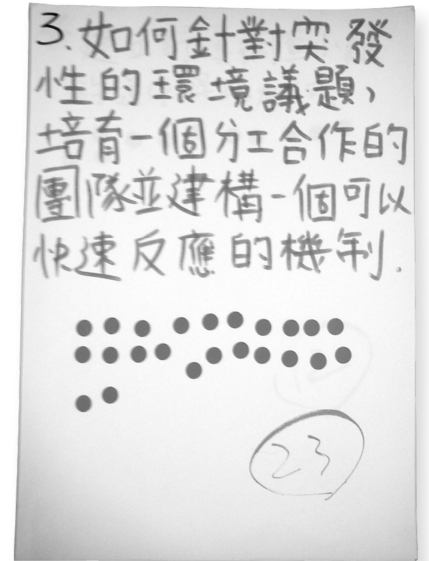 3.如何針對突發
性的環境議題,
培育一個分工合作的
團隊並建構一個可以
快速反應的機制.
23